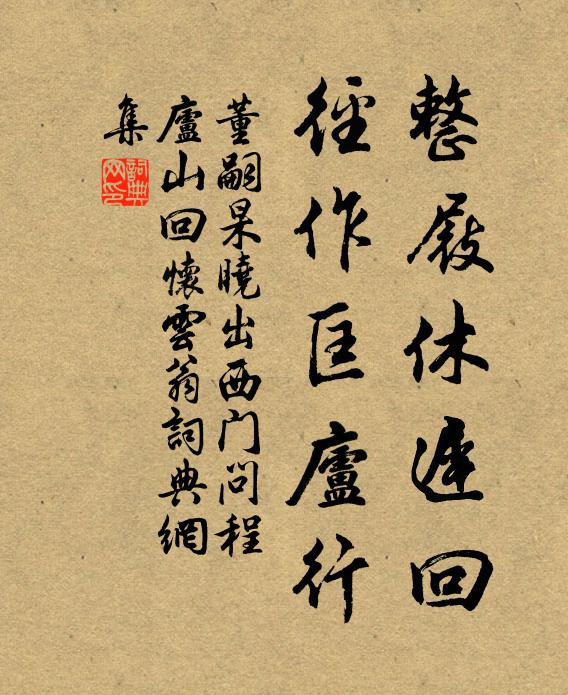 整屐休遲回
徑作匡廬行
董嗣杲曉出西门問程
廬山回懷雲翁詞典網
集
詞典网印